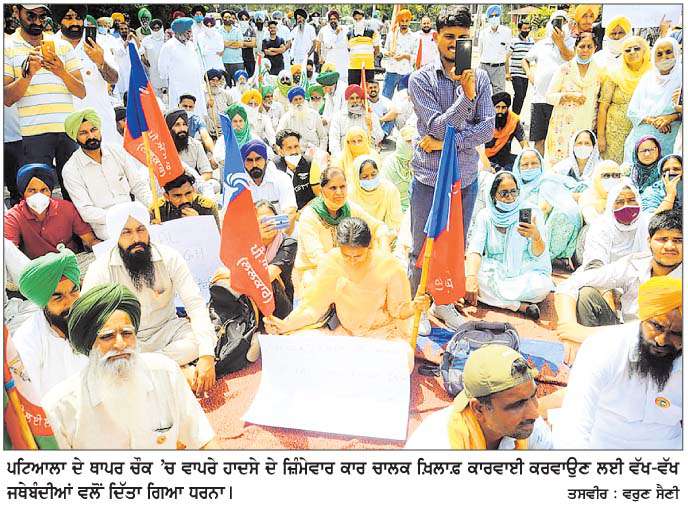 ਪੀ.ਐਸ.ਯੂ.
(ਲਲਕਾਰ)
ਪਟਿਆਲਾ ਦੇ ਥਾਪਰ ਚੌਕ ’ਚ ਵਾਪਰੇ ਹਾਦਸੇ ਦੇ ਜ਼ਿੰਮੇਵਾਰ ਕਾਰ ਚਾਲਕ ਖ਼ਿਲਾਫ਼ ਕਾਰਵਾਈ ਕਰਵਾਉਣ ਲਈ ਵੱਖ-ਵੱਖ
ਜਥੇਬੰਦੀਆਂ ਵਲੋਂ ਦਿੱਤਾ ਗਿਆ ਧਰਨਾ।
ਤਸਵੀਰ : ਵਰੁਣ ਸੈਣੀ